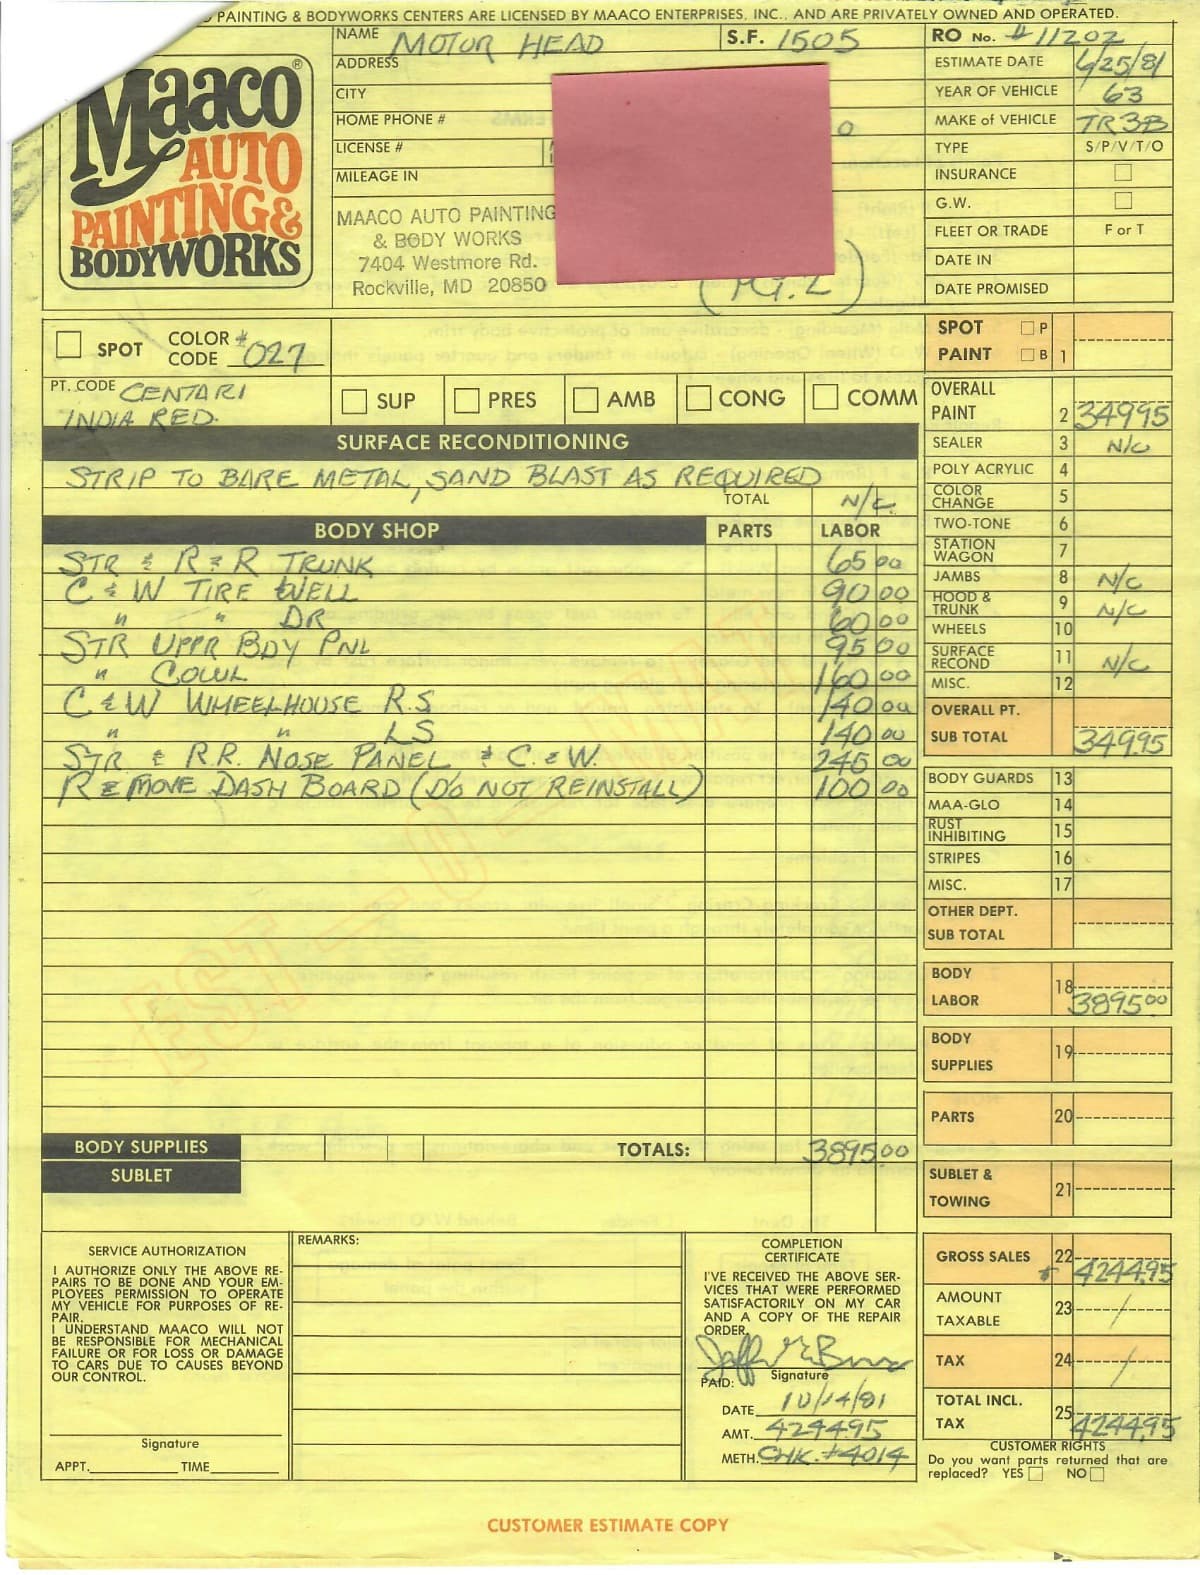 PAINTING & BODYWORKS CENTERS ARE LICENSED BY MAACO ENTERPRISES, INC., AND ARE PRIVATELY OWNED AND OPERATED.
Maaco ®
AUTO
PAINTING &
BODYWORKS
NAME MOTOR HEAD S.F. 1505
ADDRESS
CITY
HOME PHONE #
LICENSE #
MILEAGE IN
MAACO AUTO PAINTING
& BODY WORKS
7404 Westmore Rd.
Rockville, MD 20850
RO No. #11202
ESTIMATE DATE 6/25/81
YEAR OF VEHICLE 63
MAKE of VEHICLE TR3B
TYPE S/P/V/T/O
INSURANCE
G.W.
FLEET OR TRADE F or T
DATE IN
DATE PROMISED
SPOT COLOR CODE #027
PT. CODE CENTARI
INDIA RED.
SUP PRES AMB CONG COMM
SURFACE RECONDITIONING
STRIP TO BARE METAL, SAND BLAST AS REQUIRED
TOTAL N/C
BODY SHOP PARTS LABOR
STR & R & R TRUNK 65 00
C & W TIRE WELL 90 00
" " DR 60 00
STR UPPR BDY PNL 95 00
" COWL 160 00
C & W WHEELHOUSE R.S 140 00
" " LS 140 00
STR & R.R. NOSE PANEL & C & W. 245 00
REMOVE DASH BOARD (DO NOT REINSTALL) 100 00
EST
BODY SUPPLIES TOTALS: 3895.00
SUBLET
SPOT P
PAINT B 1
OVERALL
PAINT 2 349 95
SEALER 3 N/C
POLY ACRYLIC 4
COLOR
CHANGE 5
TWO-TONE 6
STATION
WAGON 7
JAMBS 8 N/C
HOOD &
TRUNK 9 N/C
WHEELS 10
SURFACE
RECOND 11 N/C
MISC. 12
OVERALL PT.
SUB TOTAL 349.95
BODY GUARDS 13
MAA-GLO 14
RUST
INHIBITING 15
STRIPES 16
MISC. 17
OTHER DEPT.
SUB TOTAL
BODY
LABOR 18 3895 00
BODY
SUPPLIES 19
PARTS 20
SUBLET &
TOWING 21
GROSS SALES 22 4244.95
AMOUNT
TAXABLE 23 /
TAX 24 /
TOTAL INCL.
TAX 25 4244.95
CUSTOMER RIGHTS
Do you want parts returned that are
replaced? YES NO
SERVICE AUTHORIZATION
I AUTHORIZE ONLY THE ABOVE RE-
PAIRS TO BE DONE AND YOUR EM-
PLOYEES PERMISSION TO OPERATE
MY VEHICLE FOR PURPOSES OF RE-
PAIR.
I UNDERSTAND MAACO WILL NOT
BE RESPONSIBLE FOR MECHANICAL
FAILURE OR FOR LOSS OR DAMAGE
TO CARS DUE TO CAUSES BEYOND
OUR CONTROL.
Signature
APPT. TIME
REMARKS:
COMPLETION
CERTIFICATE
I'VE RECEIVED THE ABOVE SER-
VICES THAT WERE PERFORMED
SATISFACTORILY ON MY CAR
AND A COPY OF THE REPAIR
ORDER.
Signature
PAID:
DATE 10/14/81
AMT. 4244.95
METH. CHK. #4014
CUSTOMER ESTIMATE COPY